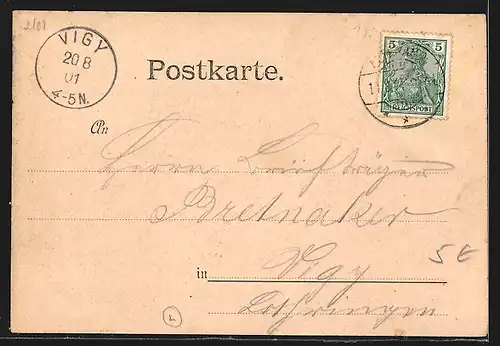 2/01
VIGY
20 8
01
4-5N.
5 5
REICHSPOST
Postkarte.
An
Herrn Briefträger
Bretnaker
in Vigy
Lothringen
5 €
L